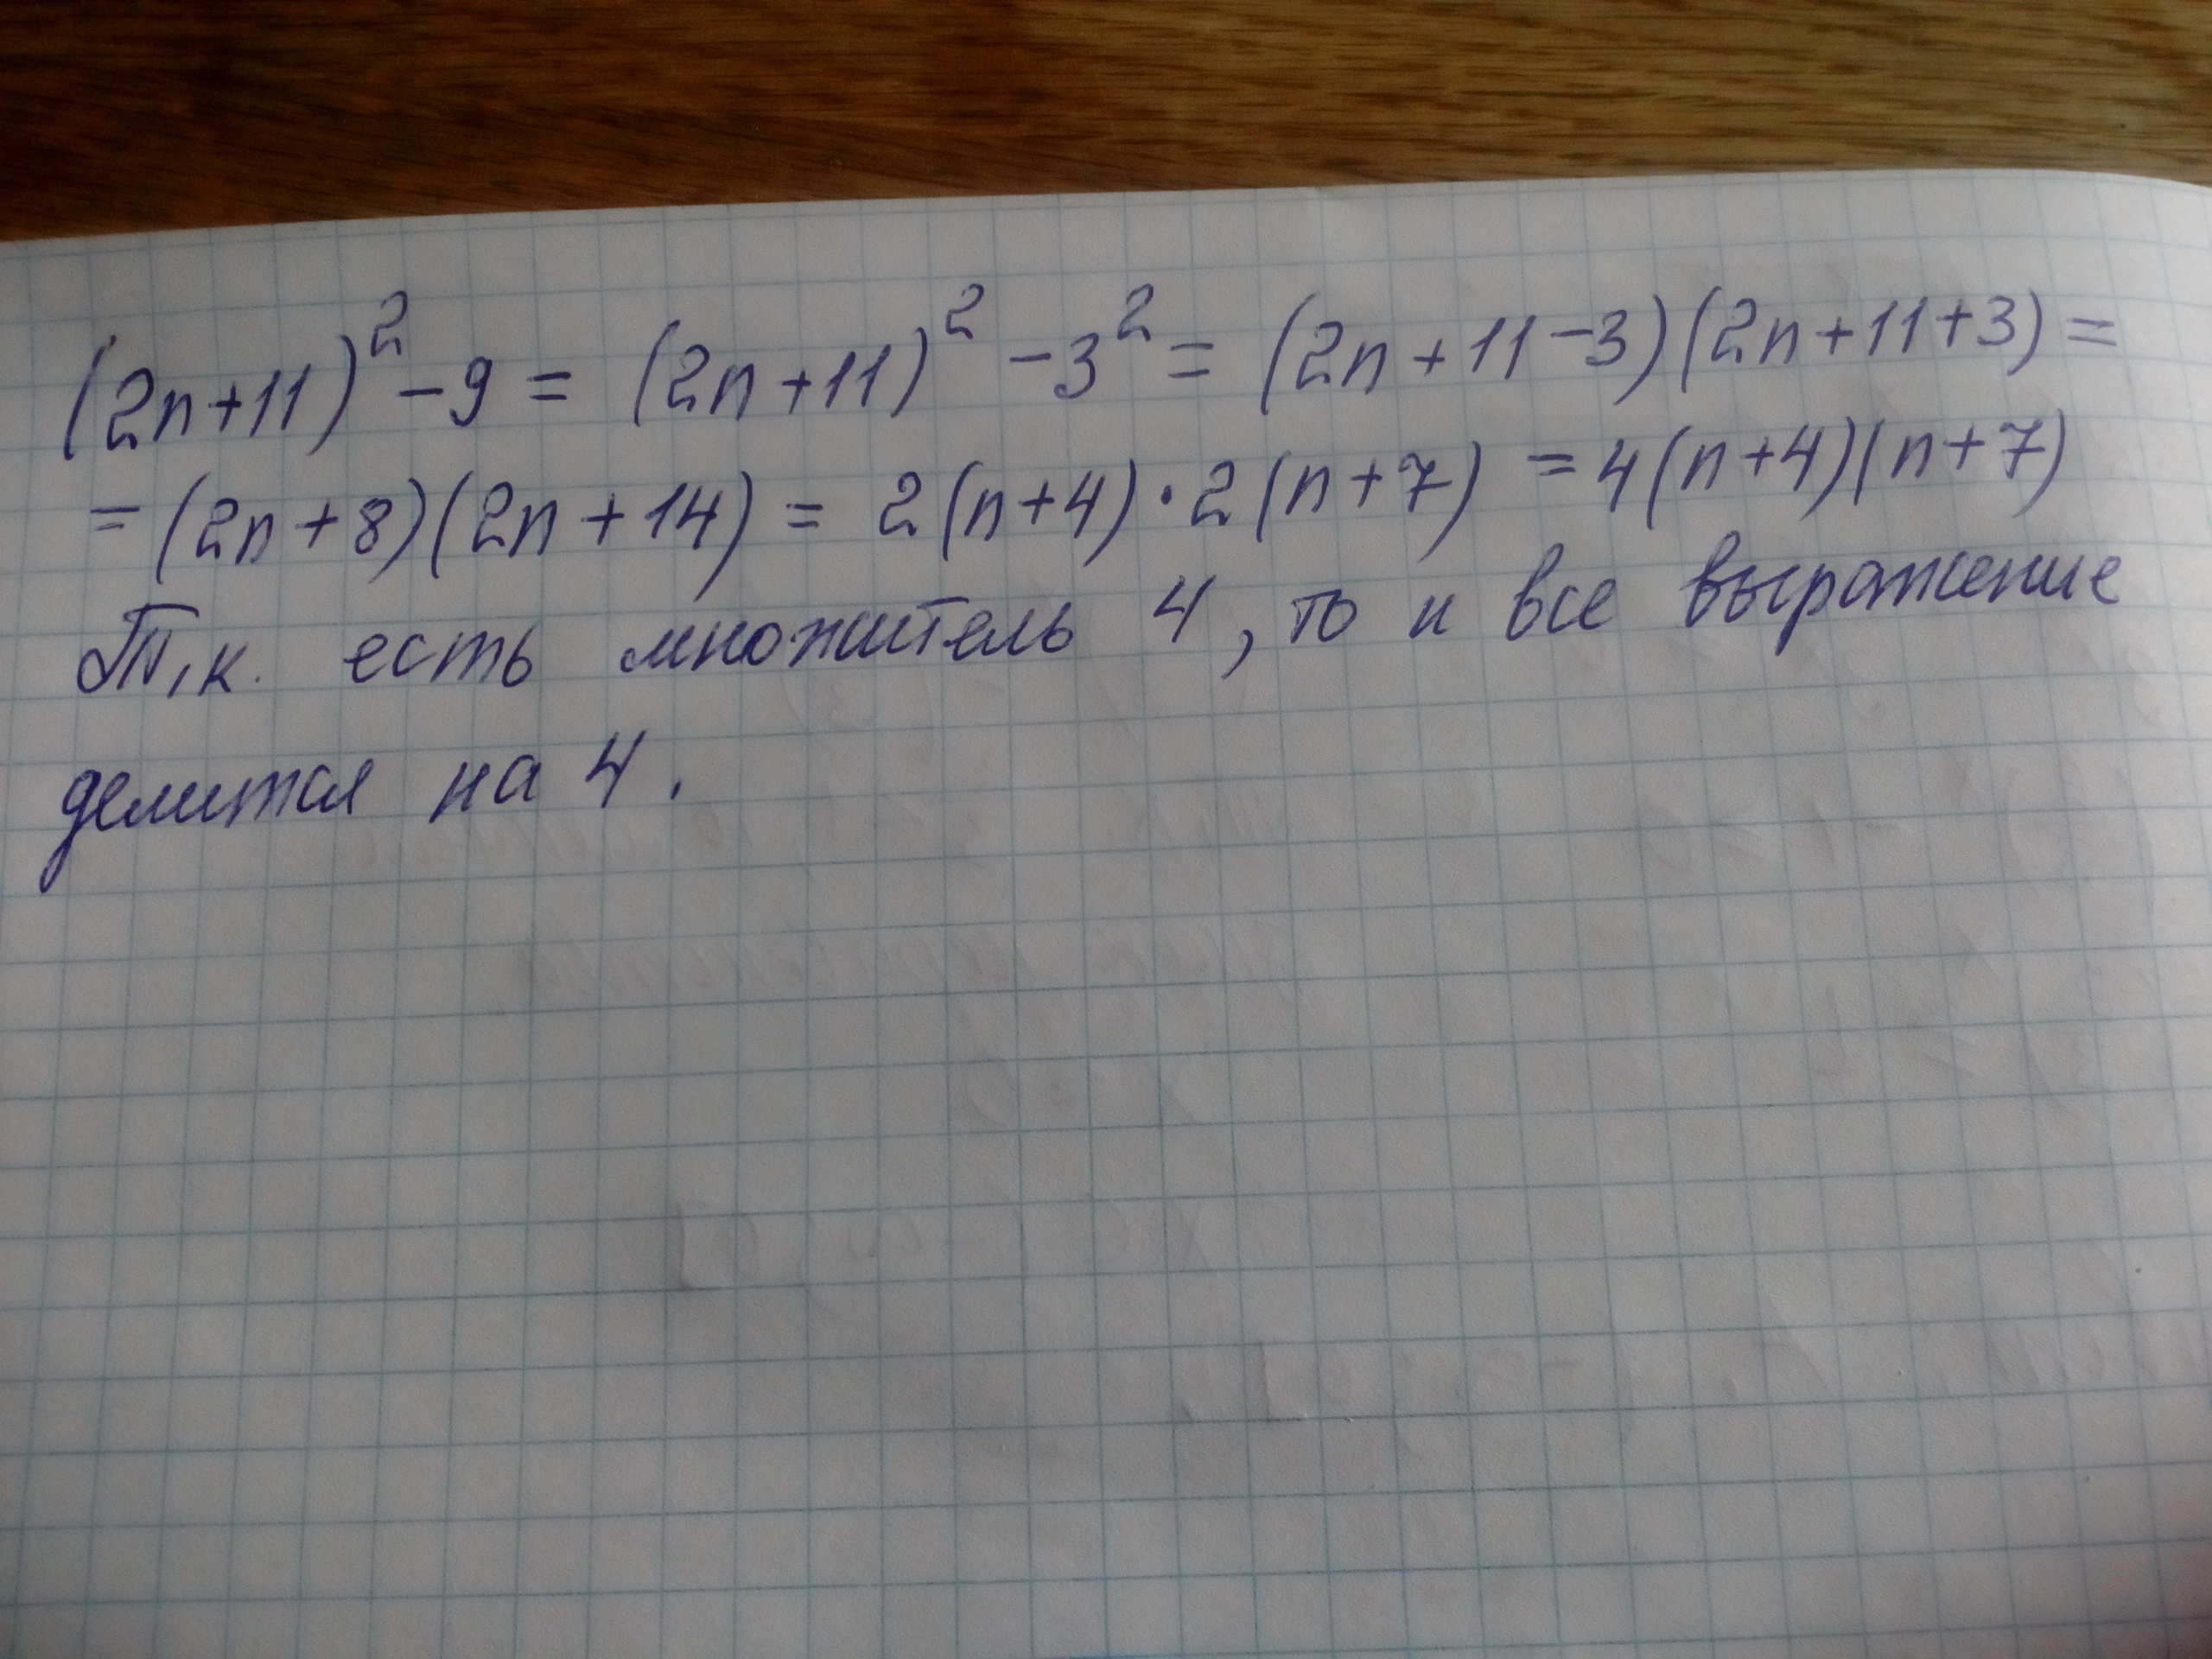 (2n+11)²-9 = (2n+11)² -3² = (2n+11-3)(2n+11+3)=
=(2n+8)(2n+14) = 2(n+4)·2(n+7) =4(n+4)(n+7)
Т.к. есть множитель 4, то и все выражение
делится на 4.